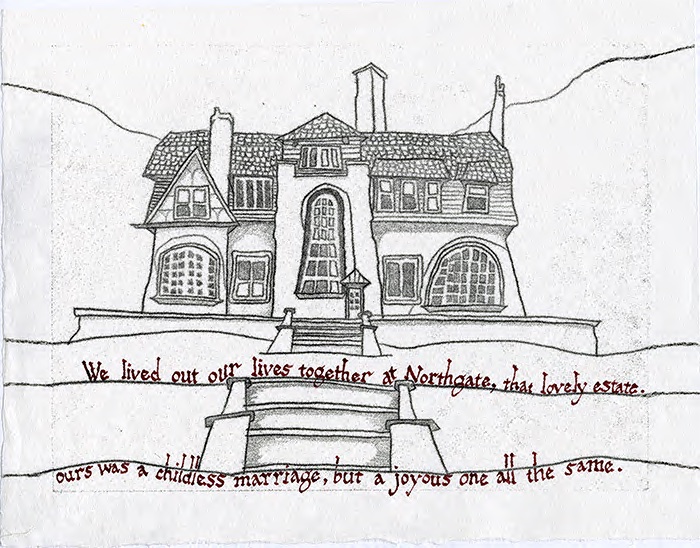 We lived out our lives together at Northgate, that lovely estate.
ours was a childless marriage, but a joyous one all the same.